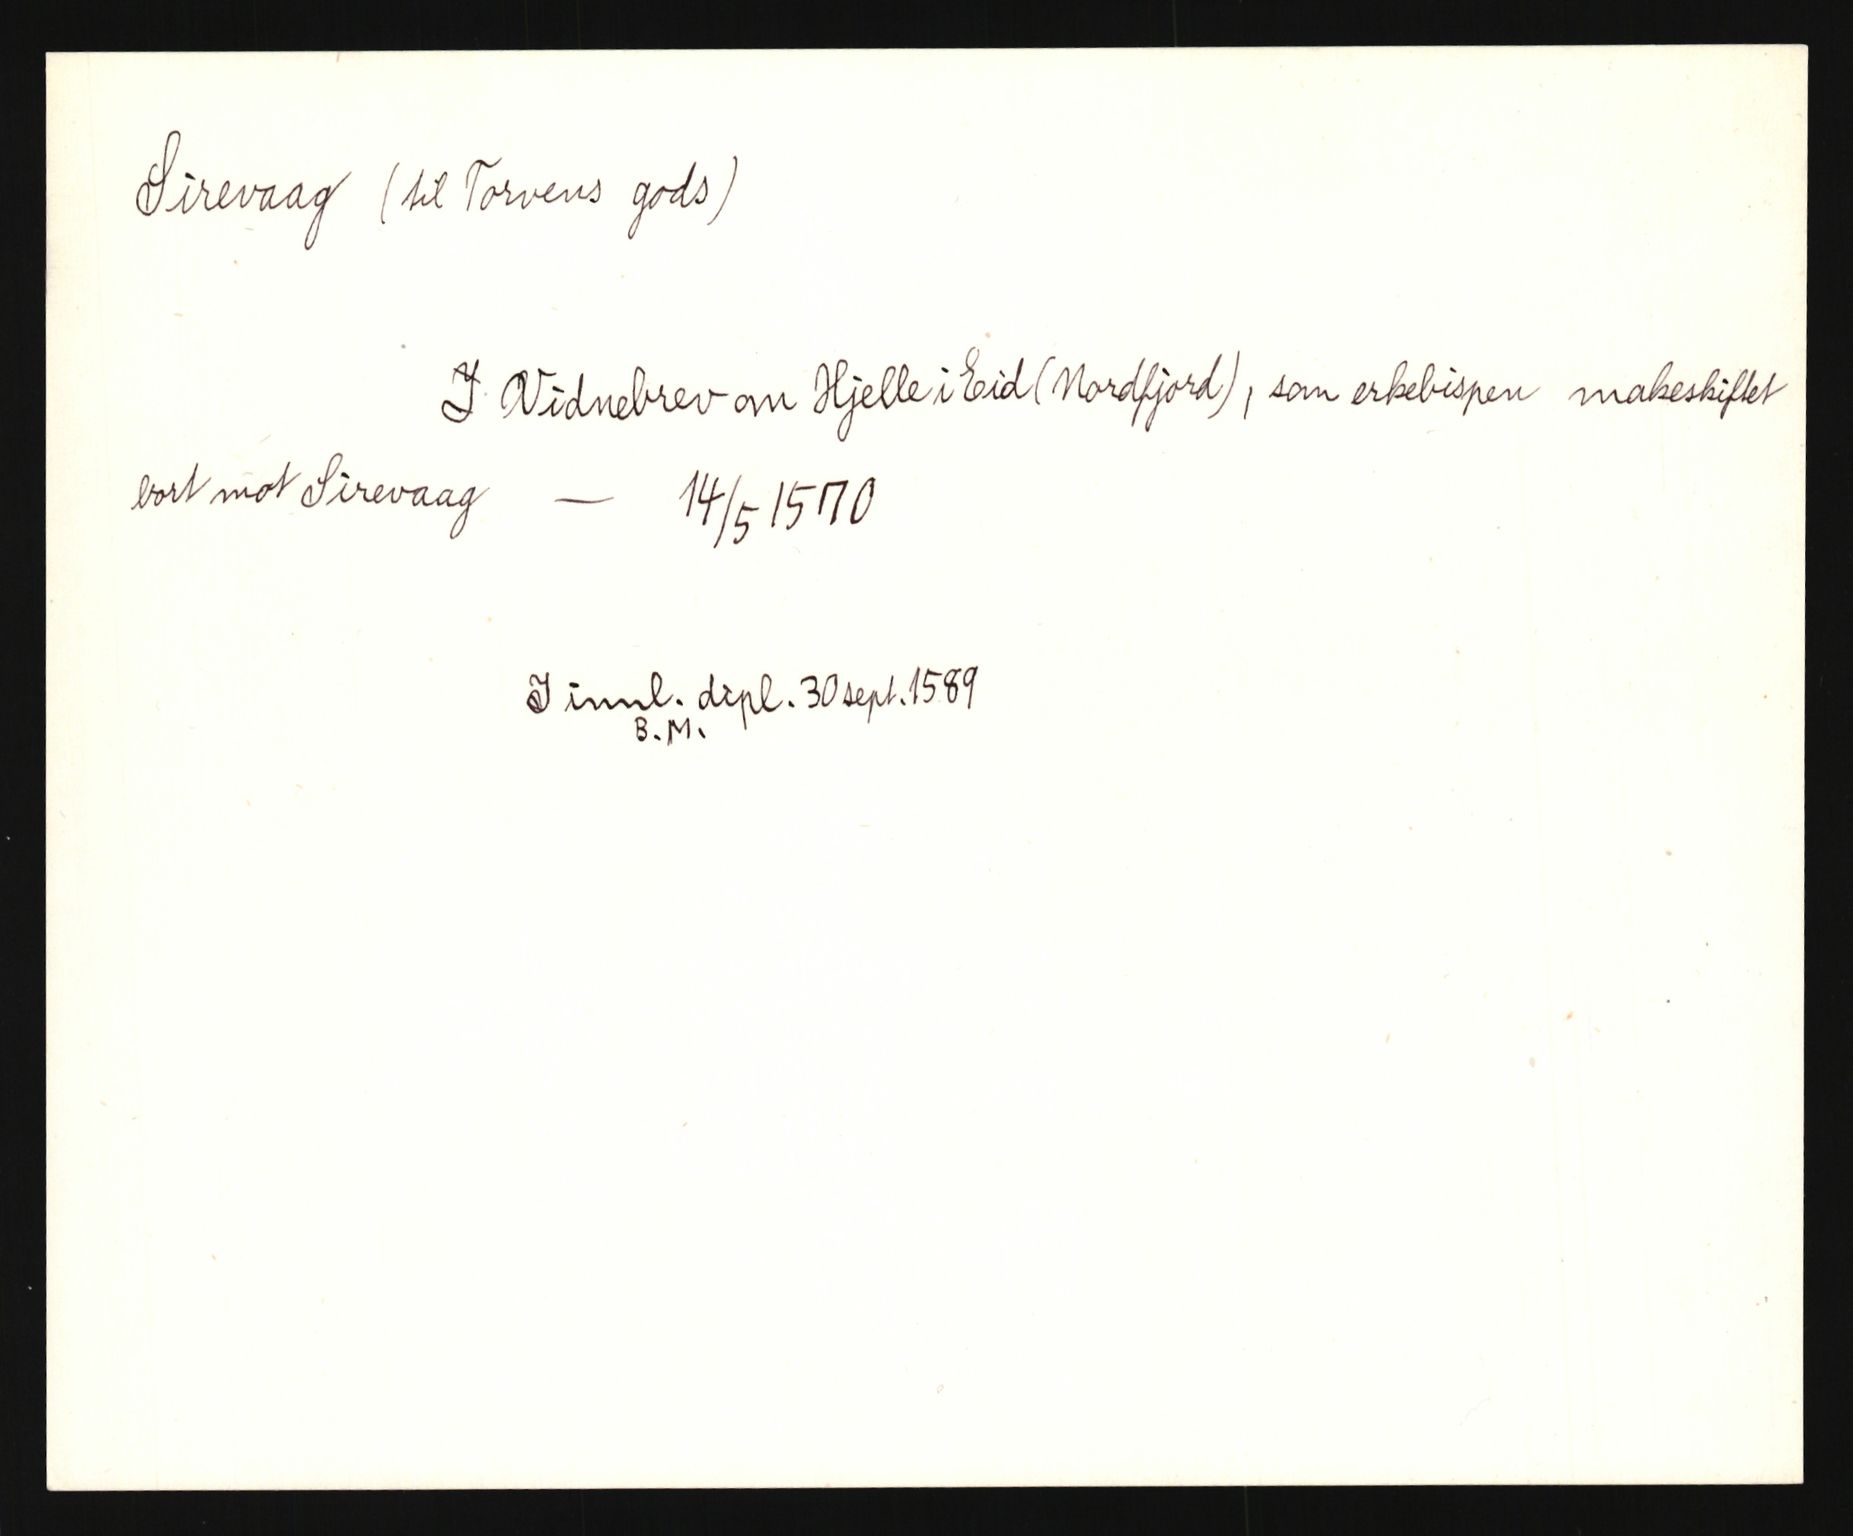 Sirevaag (til Torvens gods)
I Vidnebrev om Hjelle i Eid (Nordfjord), som erkebispen makeskiftet
bort mot Sirevaag — 14/5 1570
I innl. dipl. 30 sept. 1589
B.M.